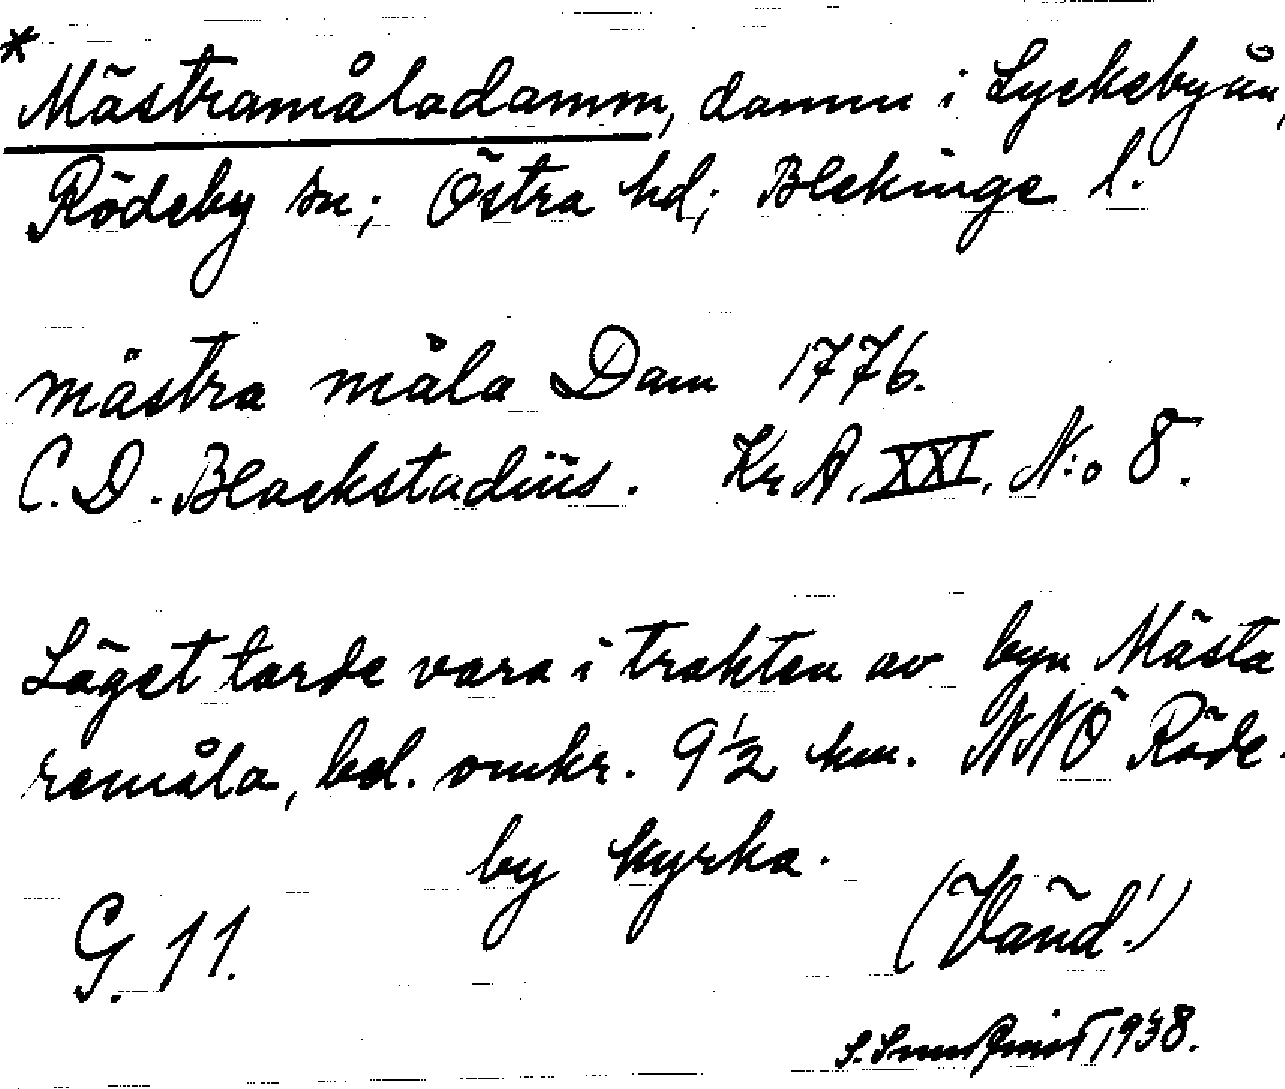 * Mästramåladamm, damm i Lyckebyån,
Rödeby sn; Östra hd; Blekinge l.
mästra måla Dam 1776.
C. D. Blackstadius. Kr A, XXI, N:o 8.
Läget torde vara i trakten av byn Mästa
remåla, bel. omkr. 9 1/2 km. NNÖ Röde-
by kyrka.
(Vänd!)
G. 11.
S. 1938.